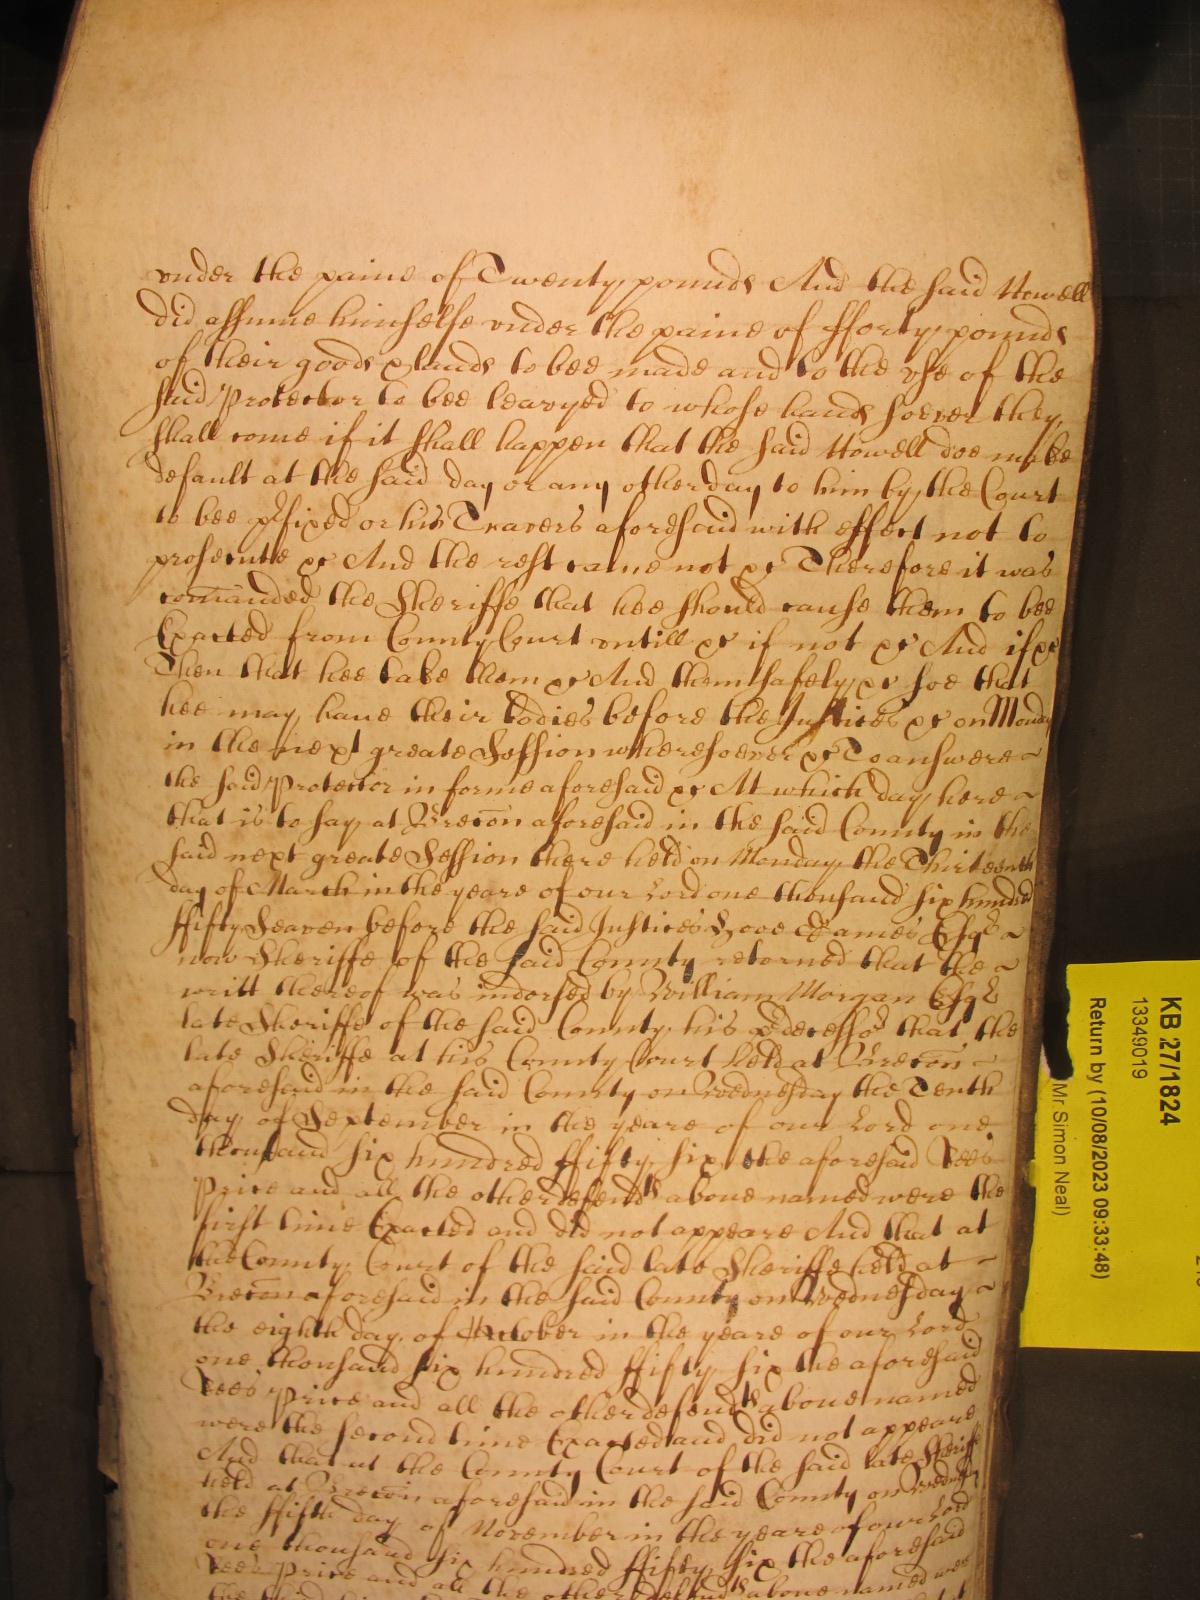 vnder the paine of Twenty pounds And the said Howell
did assume himselfe vnder the paine of fforty pounds
of their goods & lands to bee made and to the vse of the
said Protector to bee leavyed to whose hands soever they
shall come if it shall happen that the said Howell doe make
default at the said day or any other day to him by the Court
to bee p'fixed or his Travers aforesaid with effect not to
prosecute &c And the rest came not &c Therefore it was
comanded the Sheriffe that hee should cause them to bee
Exacted from County Court vntill &c if not &c And if &c
Then that hee take them &c And them safely &c soe that
hee may haue their bodies before the Justices &c on Monday
in the next greate Session wheresoever &c To answere
the said Protector in forme aforesaid &c At which day here
that is to say at Brecon aforesaid in the said County in the
said next greate Session there held on Monday the Thirteenth
day of March in the yeare of our Lord one thousand six hundred
ffifty Seaven before the said Justices James Esqr
now Sheriffe of the said County retorned that the
writt thereof was indorsed by William Morgan Esqr
late Sheriffe of the said County his p'decessor that the
late Sheriffe at his County Court held at Brecon
aforesaid in the said County on Wednesday the Tenth
day of September in the yeare of our Lord one
thousand six hundred ffifty six the aforesaid Rees
Price and all the other defendts aboue named were the
first time Exacted and did not appeare And that at
the County Court of the said late Sheriffe held at
Brecon aforesaid in the said County on Wednesday
the eighth day of October in the yeare of our Lord
one thousand six hundred ffifty six the aforesaid
Rees Price and all the other defendts aboue named
were the second time Exacted and did not appeare
And that at the County Court of the said late Sheriffe
held at Brecon aforesaid in the said County on Wednesday
the ffifth day of November in the yeare of our Lord
one thousand six hundred ffifty six the aforesaid
Rees Price and all the other defendts aboue named were
KB 27/1824
13349019
Return by (10/08/2023 09:33:48)
Mr Simon Neal)